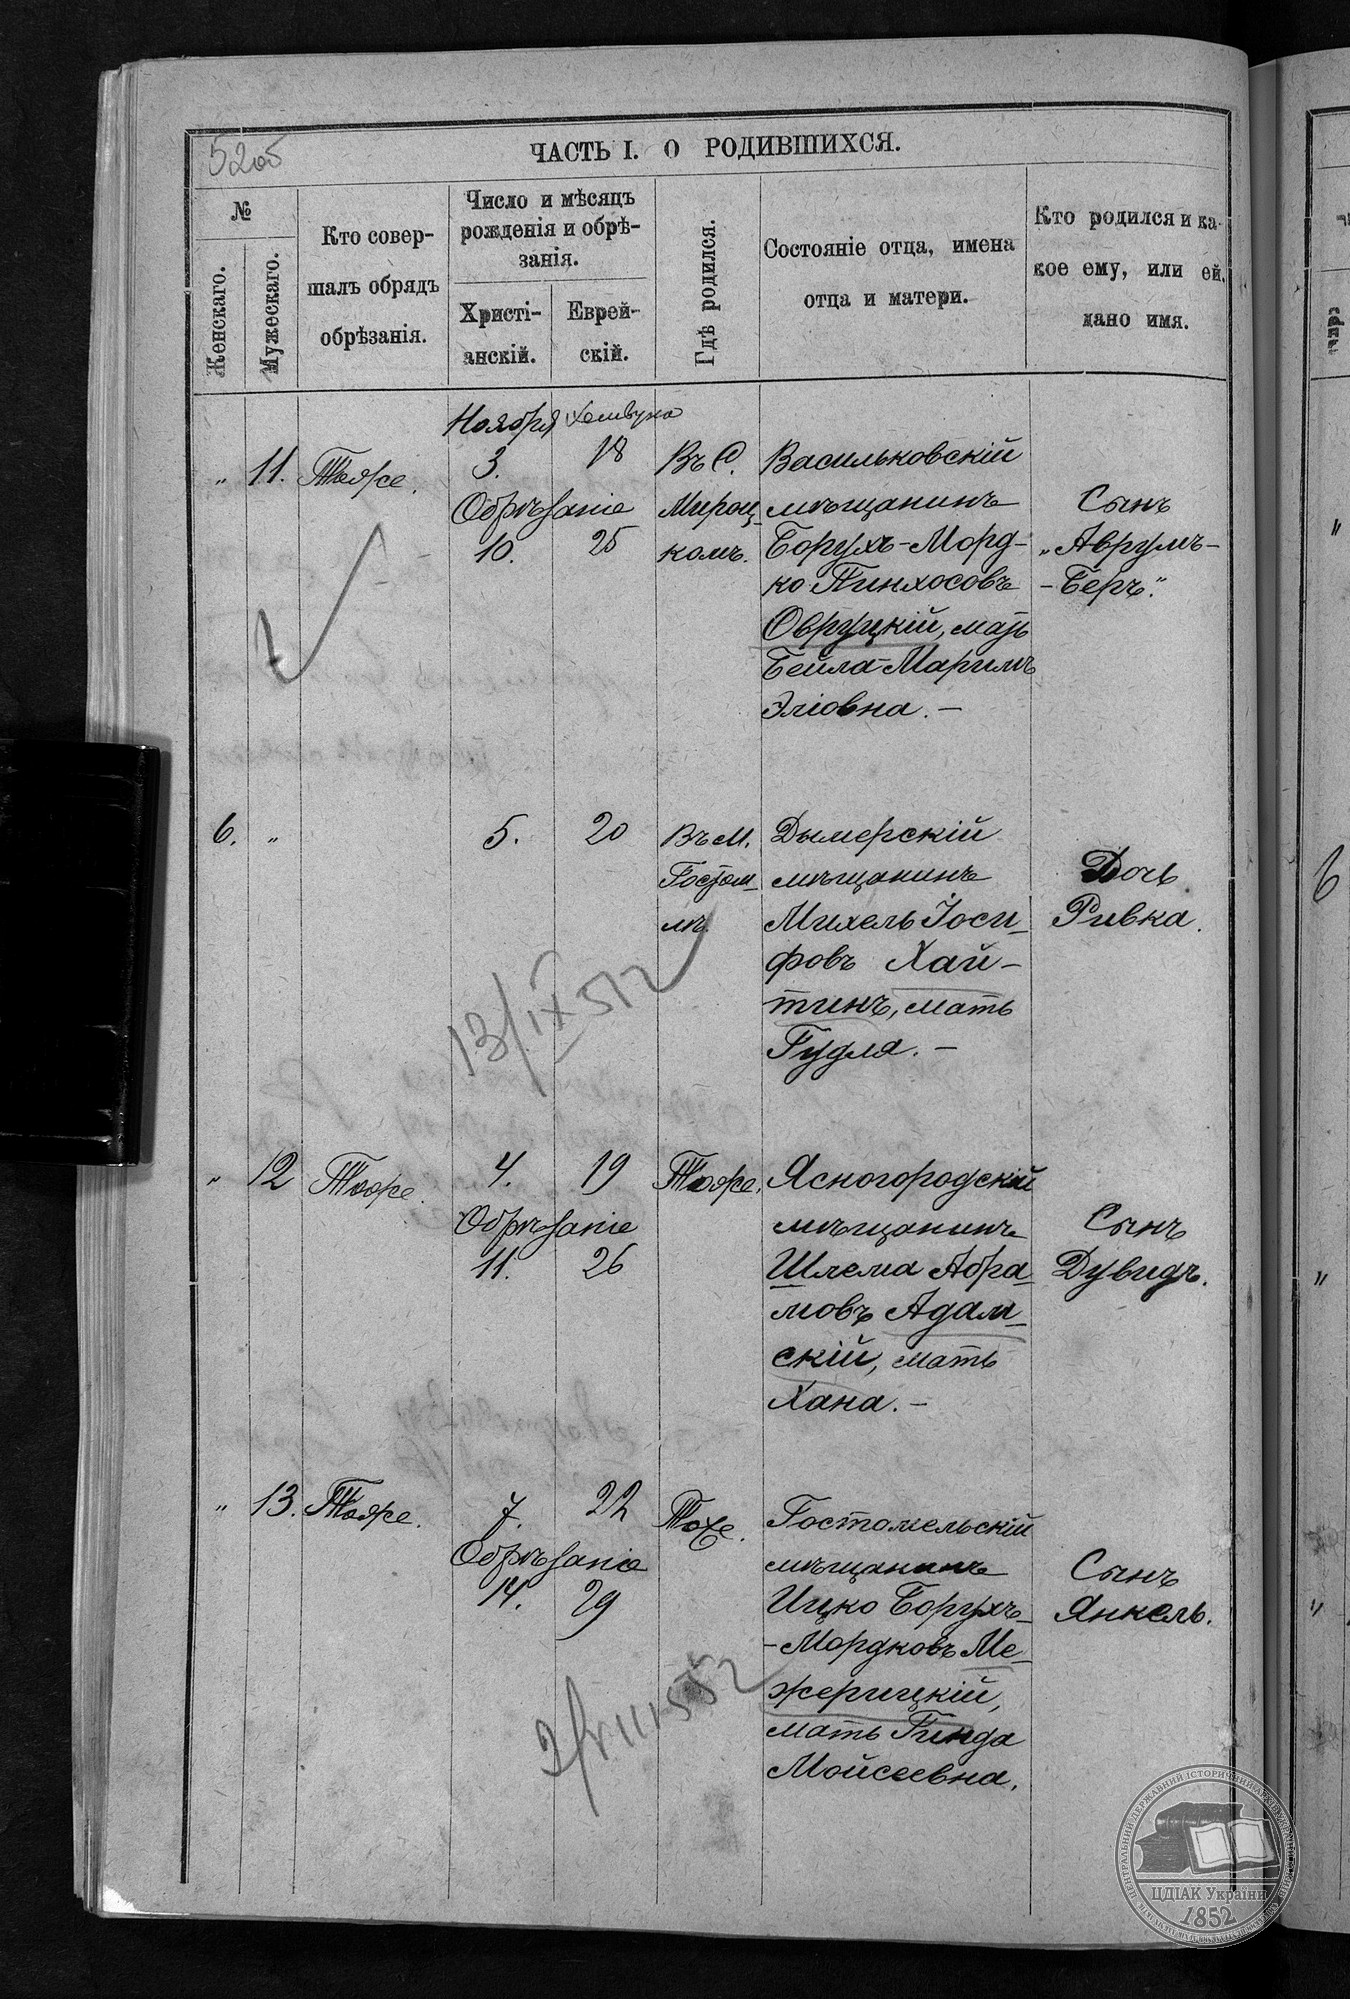 52об
ЧАСТЬ I. О РОДИВШИХСЯ.
№
Женскаго.
Мужескаго.
Кто совер-
шалъ обрядъ
обрѣзанія.
Число и мѣсяцъ
рожденія и обрѣ-
занія.
Христі-
анскій.
Еврей-
скій.
Гдѣ родился.
Состояніе отца, имена
отца и матери.
Кто родился и ка-
кое ему, или ей,
дано имя.
Ноября
" 11. Тотже.
3. 18
Обрѣзаніе
10. 25
Въ С.
Мироц-
комъ.
Васильковскій
мѣщанинъ
Борухъ-Морд-
ко Пинхосовъ
Овруцкій, мать
Бейла-Маримъ
Эліовна. –
Сынъ
„Аврумъ-
-Беръ."
6. "
5. 20
Въ м.
Гостом-
лѣ.
Дымерскій
мѣщанинъ
Михель Іоси-
фовъ Хай-
тинъ, мать
Гудля. –
Дочь
Ривка.
13/IX 512
" 12 Тотже.
4. 19
Обрѣзаніе
11. 26
Тамже.
Ясногородскій
мѣщанинъ
Шлема Абра-
мовъ Адам-
скій, мать
Хана. –
Сынъ
Дувидъ.
" 13. Тотже.
7. 22
Обрѣзаніе
14. 29
Тоже.
Гостомельскій
мѣщанинъ
Ицко Борухъ-
-Мордковъ Ме-
жерицкій,
мать Гинда
Мойсеевна.
Сынъ
Янкель.
"
6
"
"
ЦЕНТРАЛЬНИЙ ДЕРЖАВНИЙ ІСТОРИЧНИЙ АРХІВ УКРАЇНИ
ЦДІАК України
1852